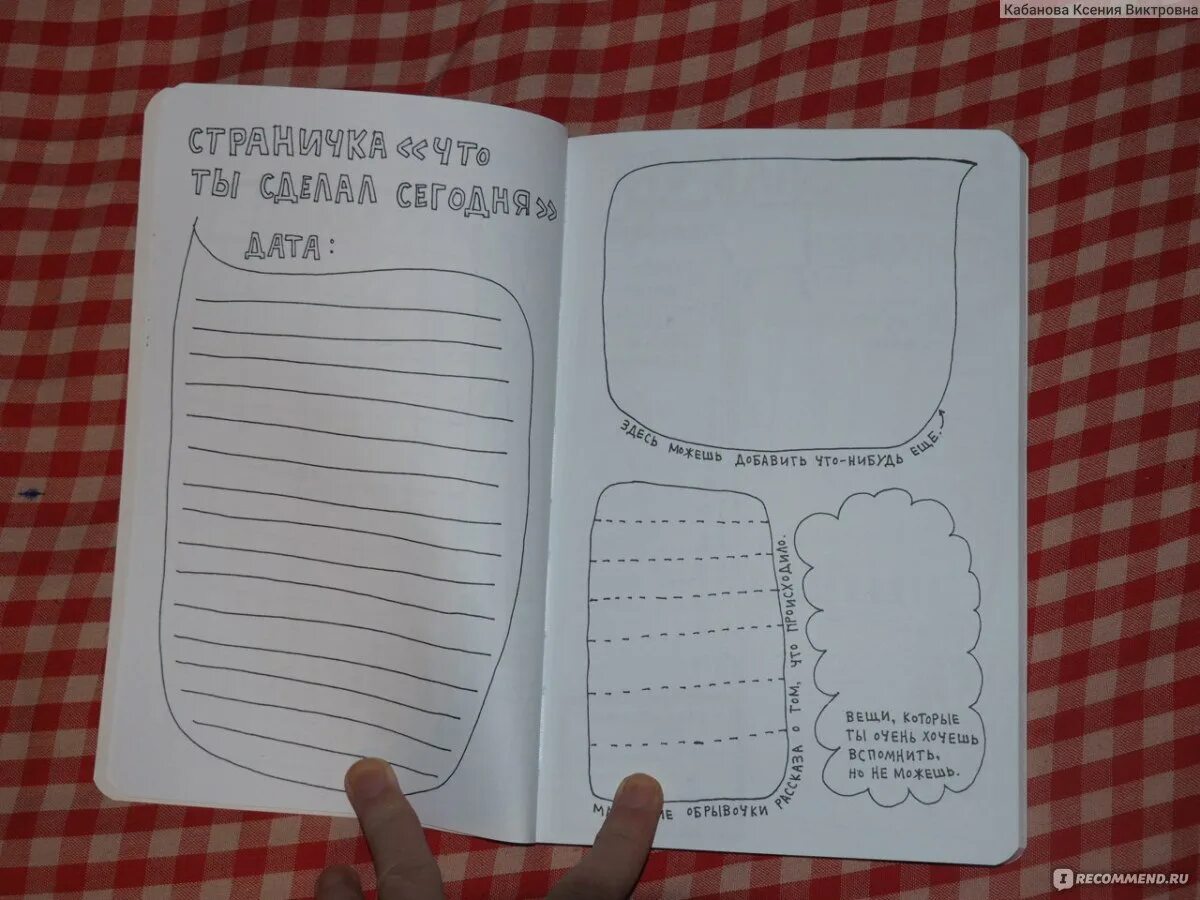 Кабанова Ксения Виктровна
СТРАНИЧКА «ЧТО
ТЫ СДЕЛАЛ СЕГОДНЯ»
ДАТА:
ЗДЕСЬ МОЖЕШЬ ДОБАВИТЬ ЧТО-НИБУДЬ ЕЩЕ.
ОБРЫВОЧКИ РАССКАЗА О ТОМ, ЧТО ПРОИСХОДИЛО.
ВЕЩИ, КОТОРЫЕ
ТЫ ОЧЕНЬ ХОЧЕШЬ
ВСПОМНИТЬ,
НО НЕ МОЖЕШЬ.
IRECOMMEND.RU